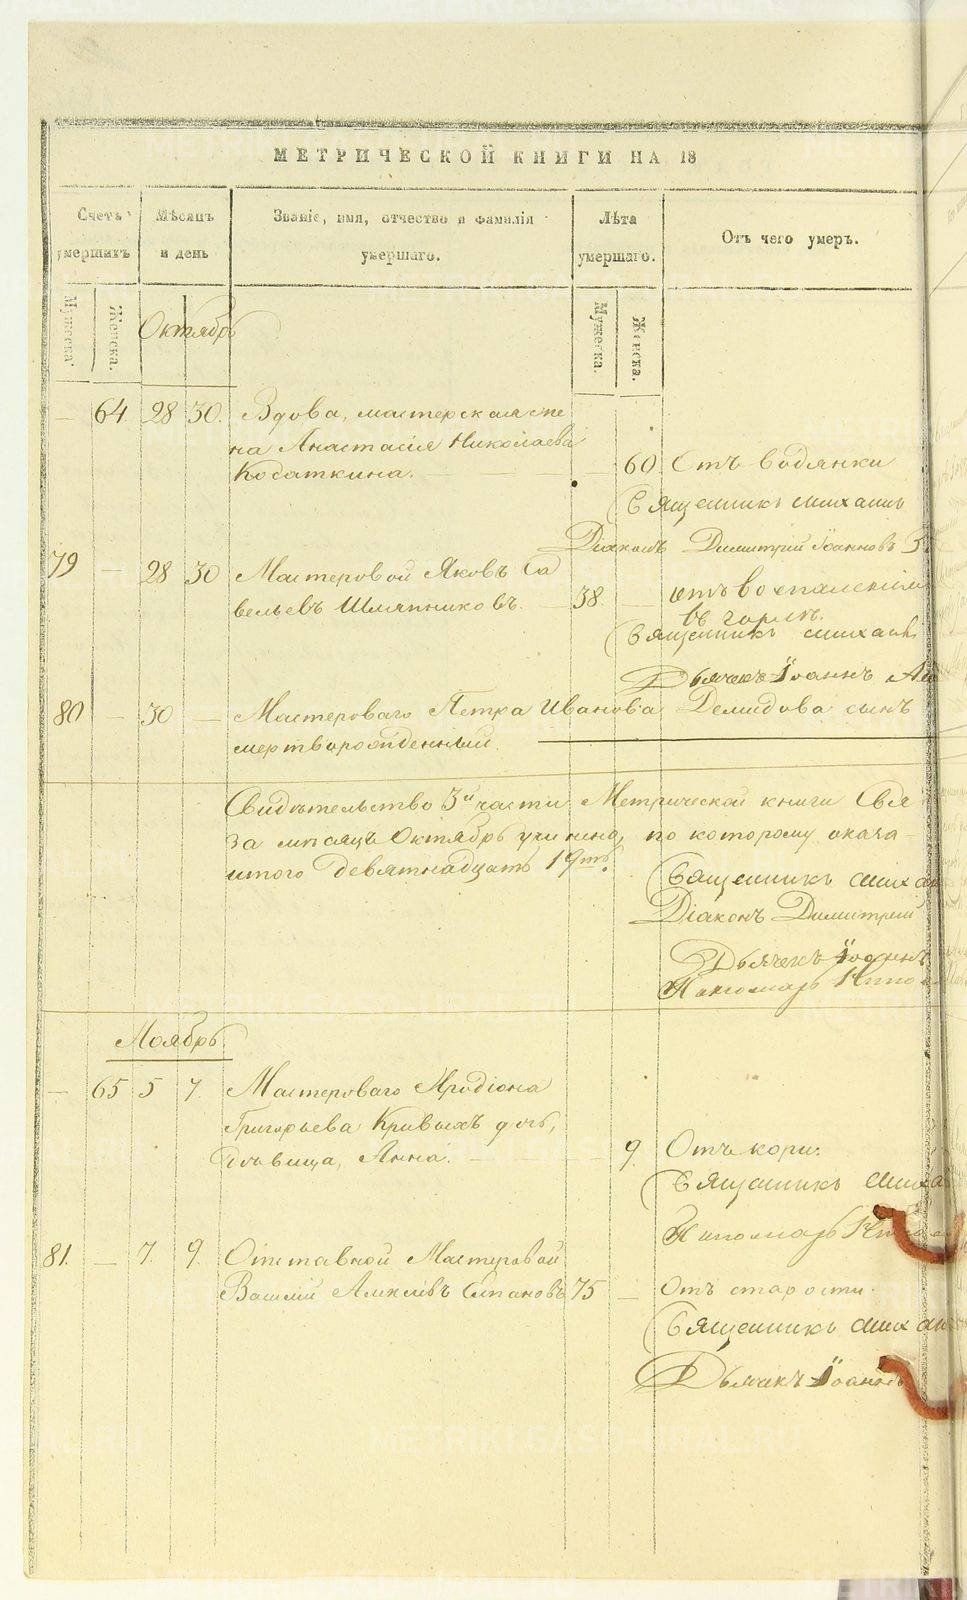 МЕТРИЧЕСКОЙ КНИГИ НА 18
Счетъ умершихъ
Мѣсяцъ и день
Званіе, имя, отчество и фамилія умершаго.
Лѣта умершаго.
Отъ чего умеръ.
Мужеска.
Женска.
Мужеска.
Женска.
Октябрь
— 64. 28 30. Вдова, мастерская же
на Анастасія Николаева
Косаткина. — 60. Отъ водянки
Священникъ Михаилъ
Діаконъ Димитрій Іоанновъ
79 — 28 30 Мастеровой Яковъ Са
вельевъ Шляпниковъ. — 38. — отъ воспаленія
въ горлѣ.
Священникъ Михаилъ
Дьячекъ Іоаннъ
80 — 30 — Мастероваго Петра Иванова Демидова сынъ
мертворожденный.
Свидѣтельство 3й части Метрической книги
за мѣсяцъ Октябрь учинено, по которому оказа-
итого девятнадцать 19ть.
Священникъ Миха
Діаконъ Димитрій
Дьячекъ Іоаннъ
Пономарь
Ноябрь.
— 65 5 7. Мастероваго Иродіона
Григорьева Кривыхъ дочь,
дѣвица, Анна. — 9. Отъ кори.
Священникъ Миха
Пономарь
81. — 7. 9. Отставной Мастеровой
Василій Алексѣевъ Степановъ 75 — Отъ старости.
Священникъ Миха
Дьячекъ Іоаннъ
METRIKI.GASO-URAL.RU